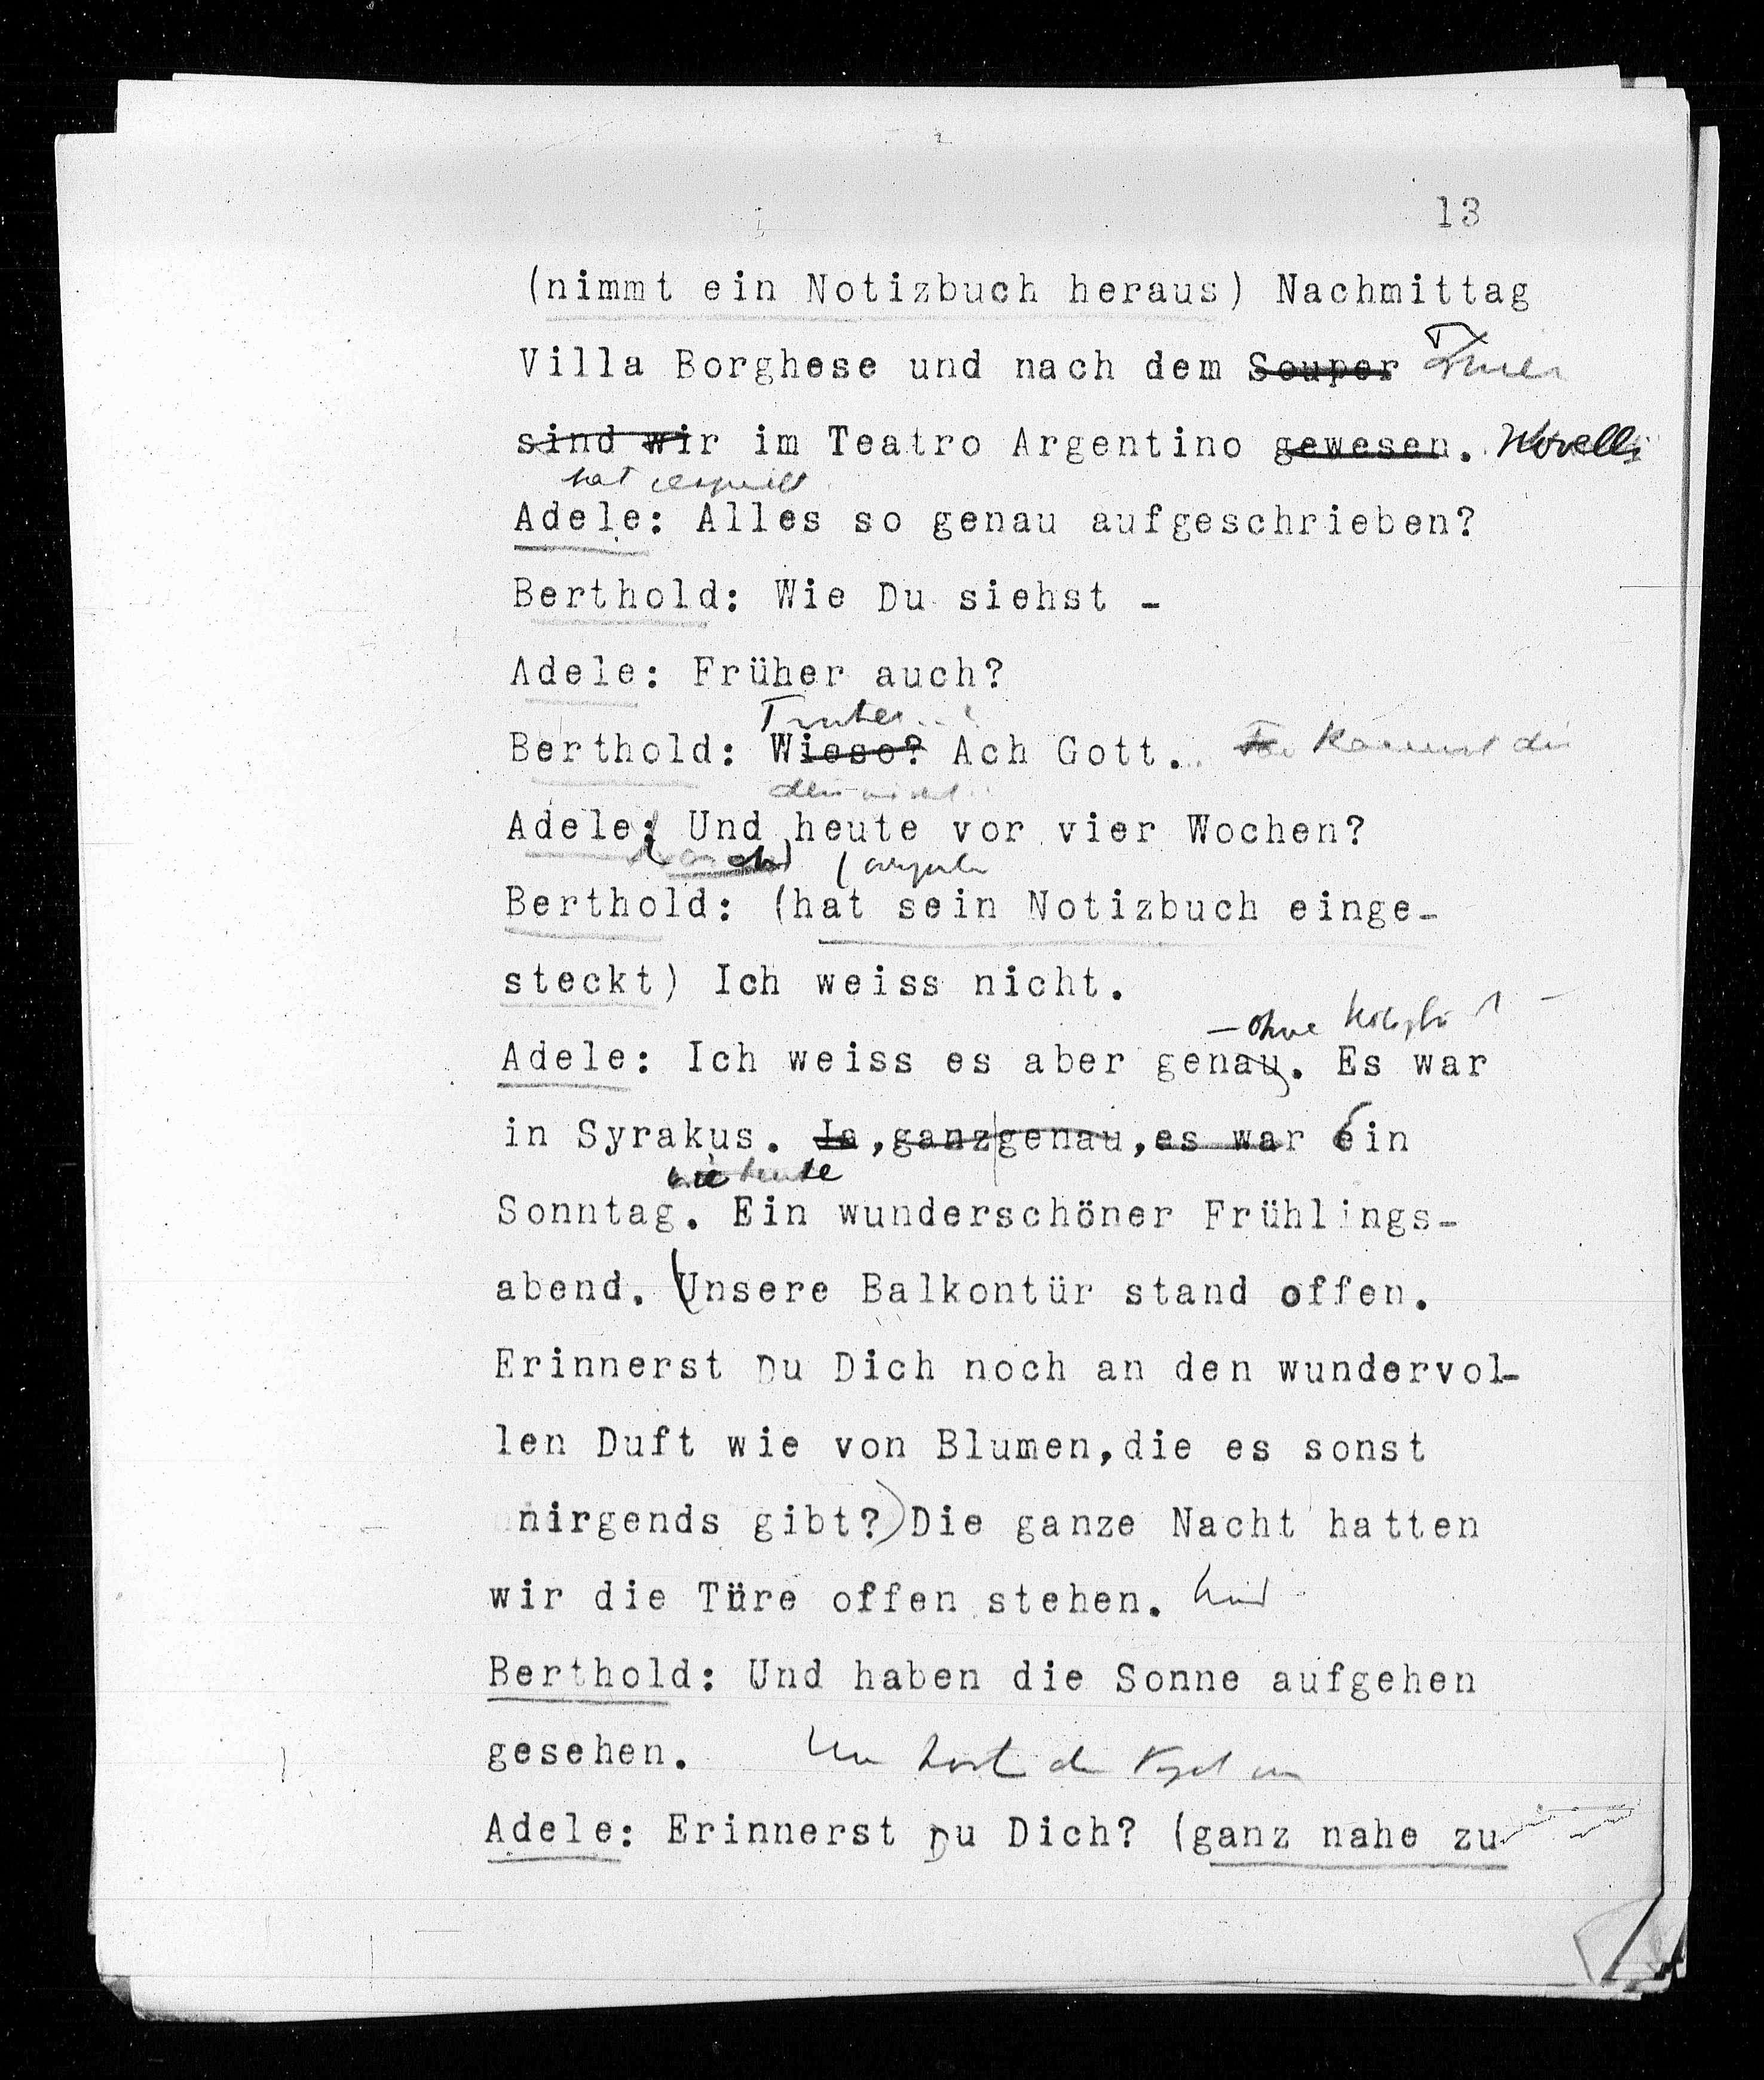 13
(nimmt ein Notizbuch heraus) Nachmittag
Villa Borghese und nach dem Souper Diner
sind wir im Teatro Argentino gewesen. Novelli
hat gespielt
Adele: Alles so genau aufgeschrieben?
Berthold: Wie Du siehst -
Adele: Früher auch?
Früher..?
Berthold: Wieso? Ach Gott...
Adele: Und heute vor vier Wochen?
Berthold: (hat sein Notizbuch einge-
steckt) Ich weiss nicht.
- ohne
Adele: Ich weiss es aber genau. Es war
in Syrakus. Ja,ganz genau,es war ein
wie heute
Sonntag. Ein wunderschöner Frühlings-
abend. Unsere Balkontür stand offen.
Erinnerst Du Dich noch an den wundervol-
len Duft wie von Blumen,die es sonst
nirgends gibt?) Die ganze Nacht hatten
wir die Türe offen stehen.
Berthold: Und haben die Sonne aufgehen
gesehen.
Adele: Erinnerst Du Dich? (ganz nahe zu